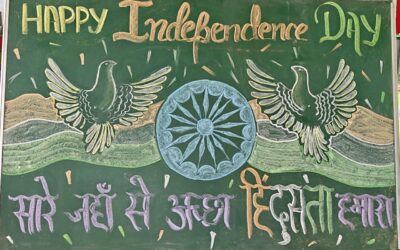 HAPPY Independence DAY
सारे जहाँ से अच्छा हिंदुसता हमारा